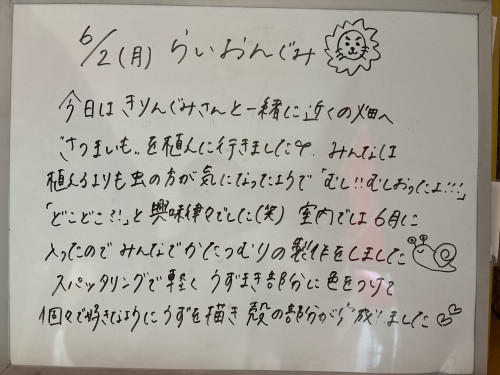 6/2(月) らいおんぐみ
今日は きりんぐみさんと一緒に近くの畑へ
"さつまいも"を植えに行きました。みんなは
植えるよりも虫の方が気になったようで「むし!!むしおったよ!!!」
「どこどこ?!」と興味津々でした(笑) 室内では6月に
入ったので みんなでかたつむりの製作をしました
スパッタリングで軽く うずまき部分に色をつけて
個々で好きなようにうずを描き 殻の部分が完成しました